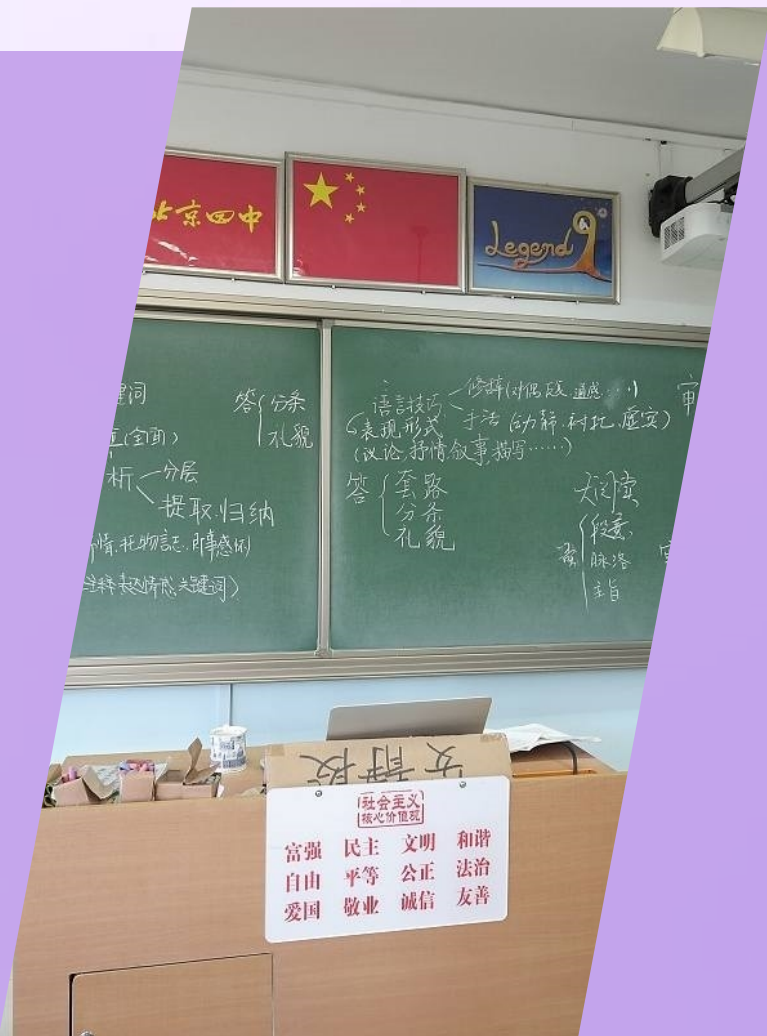 北京四中
Legend 9
键词
(全面)
析 分层
提取.归纳
情.托物言志.即事感怀
表达情感关键词)
答 分条
礼貌
语言技巧
修辞(对偶.反.通感……)
手法(动静.衬托.虚实)
表现形式
(议论.抒情.叙事.描写……)
答 套路
分条
礼貌
审
大阅读
段意
脉络
主旨
社会主义
核心价值观
富强 民主 文明 和谐
自由 平等 公正 法治
爱国 敬业 诚信 友善